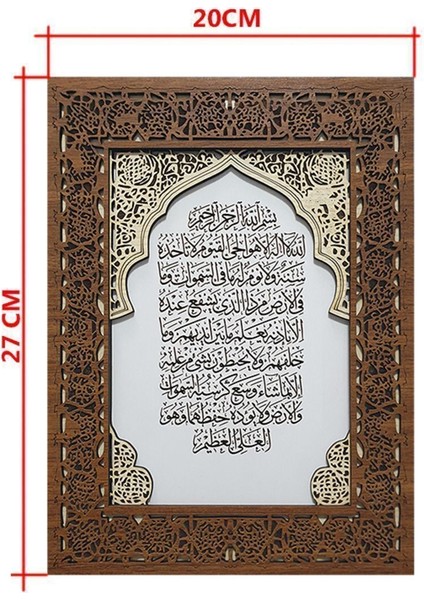 20CM
27 CM
بسم الله الرحمن الرحيم
الله لا اله الا هو الحي القيوم لا تأخذه
سنة ولا نوم له ما في السموات وما
في الارض من ذا الذي يشفع عنده
الا باذنه يعلم ما بين ايديهم وما
خلفهم ولا يحيطون بشيء من علمه
الا بما شاء وسع كرسيه السموات
والارض ولا يؤده حفظهما وهو
العلي العظيم